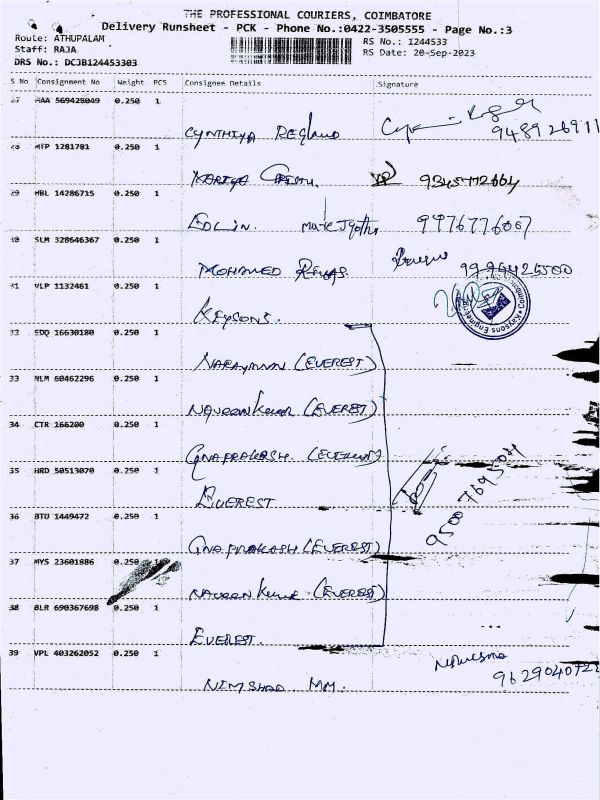 THE PROFESSIONAL COURIERS, COIMBATORE
Delivery Runsheet - PCK - Phone No.:0422-3505555 - Page No.:3
Route: ATHUPALAM
Staff: RAJA
DRS No.: DCJB124453303
RS No.: 1244533
RS Date: 20-Sep-2023
S No Consignment No Weight PCS Consignee Details Signature
569428049 0.250 1
CYNTHIYA
MTP 1281781 0.250 1
9345112664
29 MBL 14286715 0.250 1
EDLIN. 9476776067
SLM 328646367 0.250 1
MOHAMED
VLP 1132461 0.250 1
KEYSONS.
32 EDQ 16630180 0.250 1
NARAYANAN (EVEREST)
33 NLM 60462296 0.250 1
NAVEEN KUMAR (EVEREST)
34 CTR 166200 0.250 1
GNAPRAKASH. (EVEREST)
35 HRD 50513070 0.250 1
EVEREST
9500769504
36 BTU 1449472 0.250 1
GNAPRAKASH (EVEREST)
37 MYS 23601886 0.250
NAVEEN KUMAR (EVEREST)
38 BLR 690367698 0.250 1
EVEREST.
39 VPL 403262052 0.250 1
NIMSHAD MM.